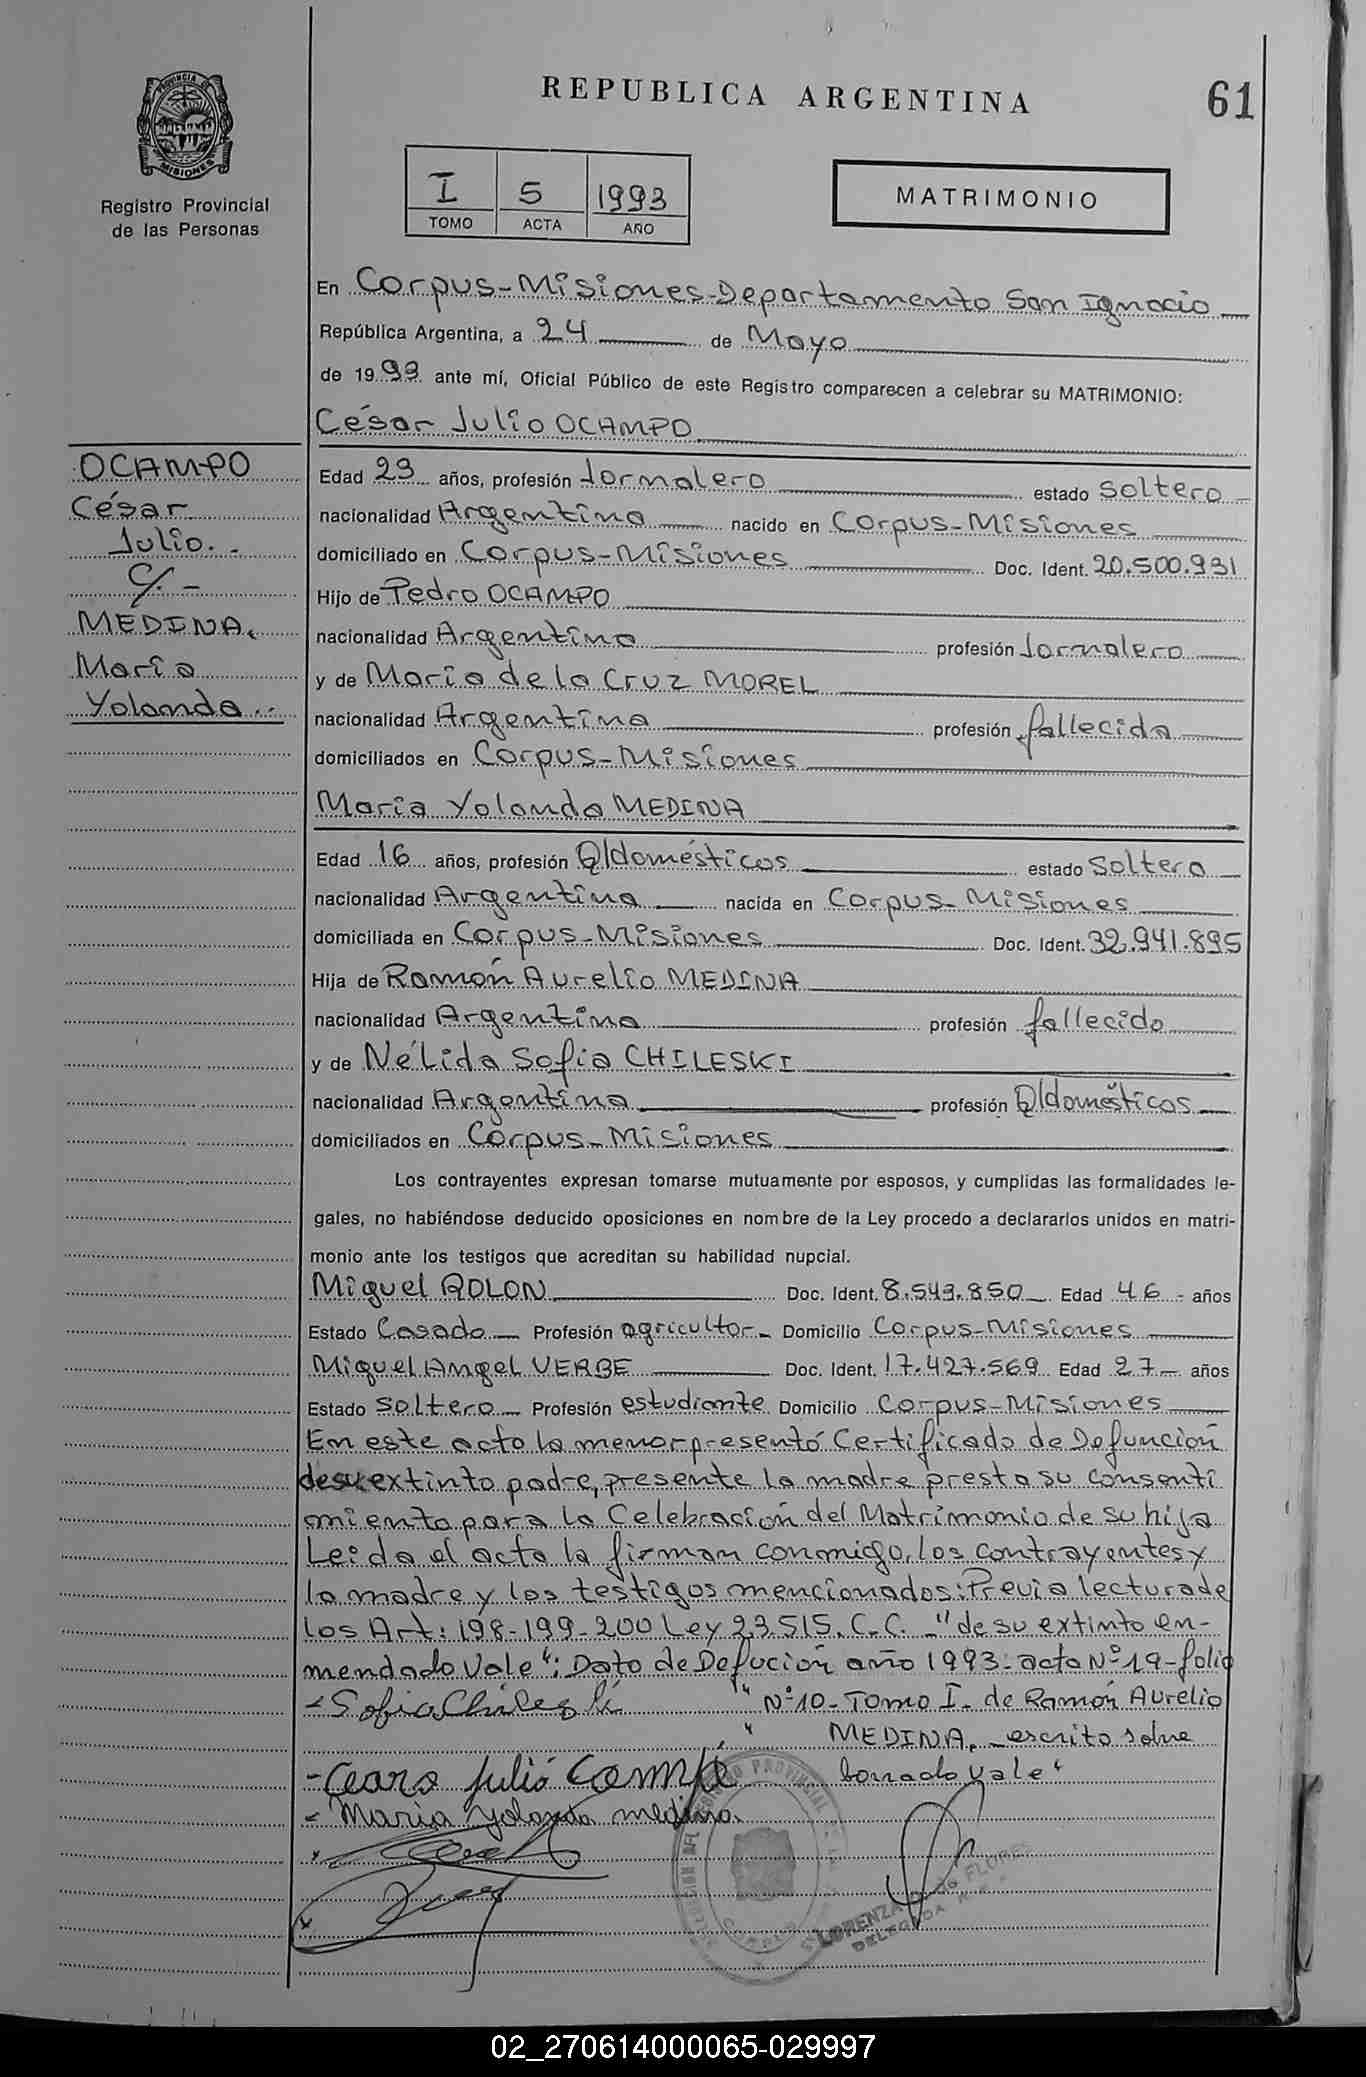 REPUBLICA ARGENTINA
61
PROVINCIA DE
MISIONES
Registro Provincial
de las Personas
I 5 1993
TOMO ACTA AÑO
MATRIMONIO
En Corpus-Misiones-Departamento San Ignacio
República Argentina, a 24 de Mayo
de 1993 ante mí, Oficial Público de este Registro comparecen a celebrar su MATRIMONIO:
César Julio OCAMPO
OCAMPO
César
Julio.-
c/.-
MEDINA,
María
Yolanda.-
Edad 23 años, profesión Jornalero estado Soltero
nacionalidad Argentina nacido en Corpus-Misiones
domiciliado en Corpus-Misiones Doc. Ident. 20.500.931
Hijo de Pedro OCAMPO
nacionalidad Argentino profesión Jornalero
y de María de la Cruz MOREL
nacionalidad Argentina profesión fallecida
domiciliados en Corpus-Misiones
María Yolanda MEDINA
Edad 16 años, profesión Q/domésticos estado Soltera
nacionalidad Argentina nacida en Corpus-Misiones
domiciliada en Corpus-Misiones Doc. Ident. 32.941.895
Hija de Ramón Aurelio MEDINA
nacionalidad Argentino profesión fallecido
y de Nélida Sofía CHILESKI
nacionalidad Argentina profesión Q/domésticos
domiciliados en Corpus-Misiones
Los contrayentes expresan tomarse mutuamente por esposos, y cumplidas las formalidades le-
gales, no habiéndose deducido oposiciones en nombre de la Ley procedo a declararlos unidos en matri-
monio ante los testigos que acreditan su habilidad nupcial.
Miguel ROLON Doc. Ident. 8.543.850 Edad 46 años
Estado Casado Profesión agricultor Domicilio Corpus-Misiones
Miguel Angel VERBE Doc. Ident. 17.427.569 Edad 27 años
Estado Soltero Profesión estudiante Domicilio Corpus-Misiones
En este acto la menor presentó Certificado de Defunción
de su extinto padre, presente la madre presta su consenti
miento para la Celebración del Matrimonio de su hija
Leída el acta la firman conmigo, los contrayentes y
la madre y los testigos mencionados: Previa lectura de
los Art: 198-199-200 Ley 23.515. C.C. -"de su extinto en-
mendado Vale": Dato de Defución año 1993-acta N°19-folio
N°10-Tomo I- de Ramón Aurelio
MEDINA, -escrito sobre
borrado vale"
- Sofia Chileski
- Cearo Julio Campo
- Maria Yolanda medina.
REGISTRO PROVINCIAL DE LA
CORPUS
LORENZA DE FLORES
DELEGADA
02_270614000065-029997